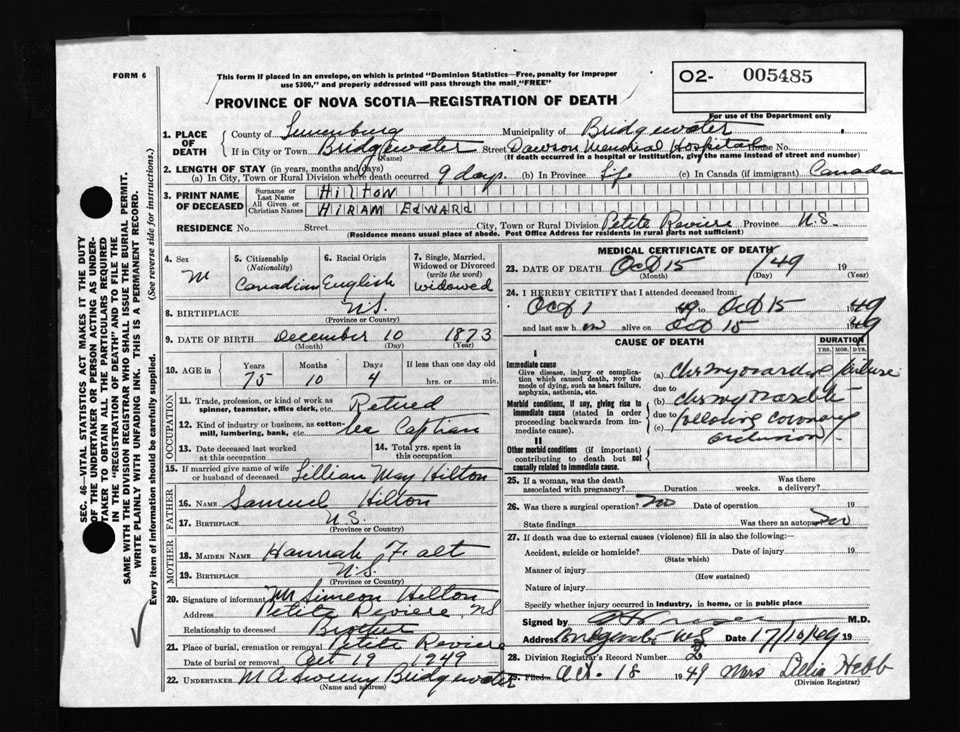 FORM 6
This form if placed in an envelope, on which is printed "Dominion Statistics—Free, penalty for improper
use $300," and properly addressed will pass through the mail "FREE"
O2- 005485
For use of the Department only
PROVINCE OF NOVA SCOTIA—REGISTRATION OF DEATH
1. PLACE OF DEATH
County of Lunenburg Municipality of Bridgewater
If in City or Town Bridgewater Street Dawson Memorial Hospital House No.
(Name) (If death occurred in a hospital or institution, give the name instead of street and number)
2. LENGTH OF STAY (in years, months and days)
(a) In City, Town or Rural Division where death occurred 9 days (b) In Province Life (c) In Canada (if immigrant) Canada
3. PRINT NAME OF DECEASED
Surname or Last Name HILTON
All Given or Christian Names HIRAM EDWARD
RESIDENCE No. Street City, Town or Rural Division Petite Reviere Province N.S.
(Residence means usual place of abode. Post Office Address for residents in rural parts not sufficient)
4. Sex M
5. Citizenship (Nationality) Canadian
6. Racial Origin English
7. Single, Married, Widowed or Divorced (write the word) widowed
8. BIRTHPLACE N.S.
(Province or Country)
9. DATE OF BIRTH December 10 1873
(Month) (Day) (Year)
10. AGE in Years 75 Months 10 Days 4 If less than one day old
hrs. or min.
OCCUPATION
11. Trade, profession, or kind of work as spinner, teamster, office clerk, etc. Retired
12. Kind of industry or business, as cotton-mill, lumbering, bank, etc. Sea Captian
13. Date deceased last worked at this occupation
14. Total yrs. spent in this occupation
15. If married give name of wife or husband of deceased Lillian May Hilton
FATHER
16. Name Samuel Hilton
17. Birthplace N.S.
(Province or Country)
MOTHER
18. Maiden Name Hannah Falt
19. Birthplace N.S.
(Province or Country)
20. Signature of informant Mr Simeon Hilton
Address Petite Reviere, NS
Relationship to deceased Brother
21. Place of burial, cremation or removal Petite Reviere
Date of burial or removal Oct 19 1949
22. Undertaker M A Sweeny Bridgewater
(Name and address)
MEDICAL CERTIFICATE OF DEATH
23. DATE OF DEATH Oct 15 /49 19
(Month) (Day) (Year)
24. I HEREBY CERTIFY that I attended deceased from:
Oct 1 1949 to Oct 15 1949
and last saw h im alive on Oct 15 1949
CAUSE OF DEATH
DURATION
YRS. MOS. DYS.
I
Immediate cause
Give disease, injury or complication which caused death, not the mode of dying, such as heart failure, asphyxia, asthenia, etc.
(a) chr myocardial failure
due to
Morbid conditions, if any, giving rise to immediate cause (stated in order proceeding backwards from immediate cause).
(b) chr myocarditis
due to
(c) following coronary
occlusion
II
Other morbid conditions (if important) contributing to death but not causally related to immediate cause.
25. If a woman, was the death associated with pregnancy? Duration weeks. Was there a delivery?
26. Was there a surgical operation? no Date of operation 19
State findings Was there an autopsy? no
27. If death was due to external causes (violence) fill in also the following:—
Accident, suicide or homicide? Date of injury 19
(State which)
Manner of injury
(How sustained)
Nature of injury
Specify whether injury occurred in industry, in home, or in public place
Signed by M.D.
Address Bridgewater N.S. Date 17/10/49 19
28. Division Registrar's Record Number
29. Filed Oct. 18 1949 Mrs Lelia Hebb
(Division Registrar)
SEC. 46—VITAL STATISTICS ACT MAKES IT THE DUTY
OF THE UNDERTAKER OR PERSON ACTING AS UNDERTAKER
TO OBTAIN ALL THE PARTICULARS REQUIRED
IN THE "REGISTRATION OF DEATH" AND TO FILE THE
SAME WITH THE DIVISION REGISTRAR WHO SHALL ISSUE THE BURIAL PERMIT.
WRITE PLAINLY WITH UNFADING INK. THIS IS A PERMANENT RECORD.
Every item of information should be carefully supplied. (See reverse side for instructions.)